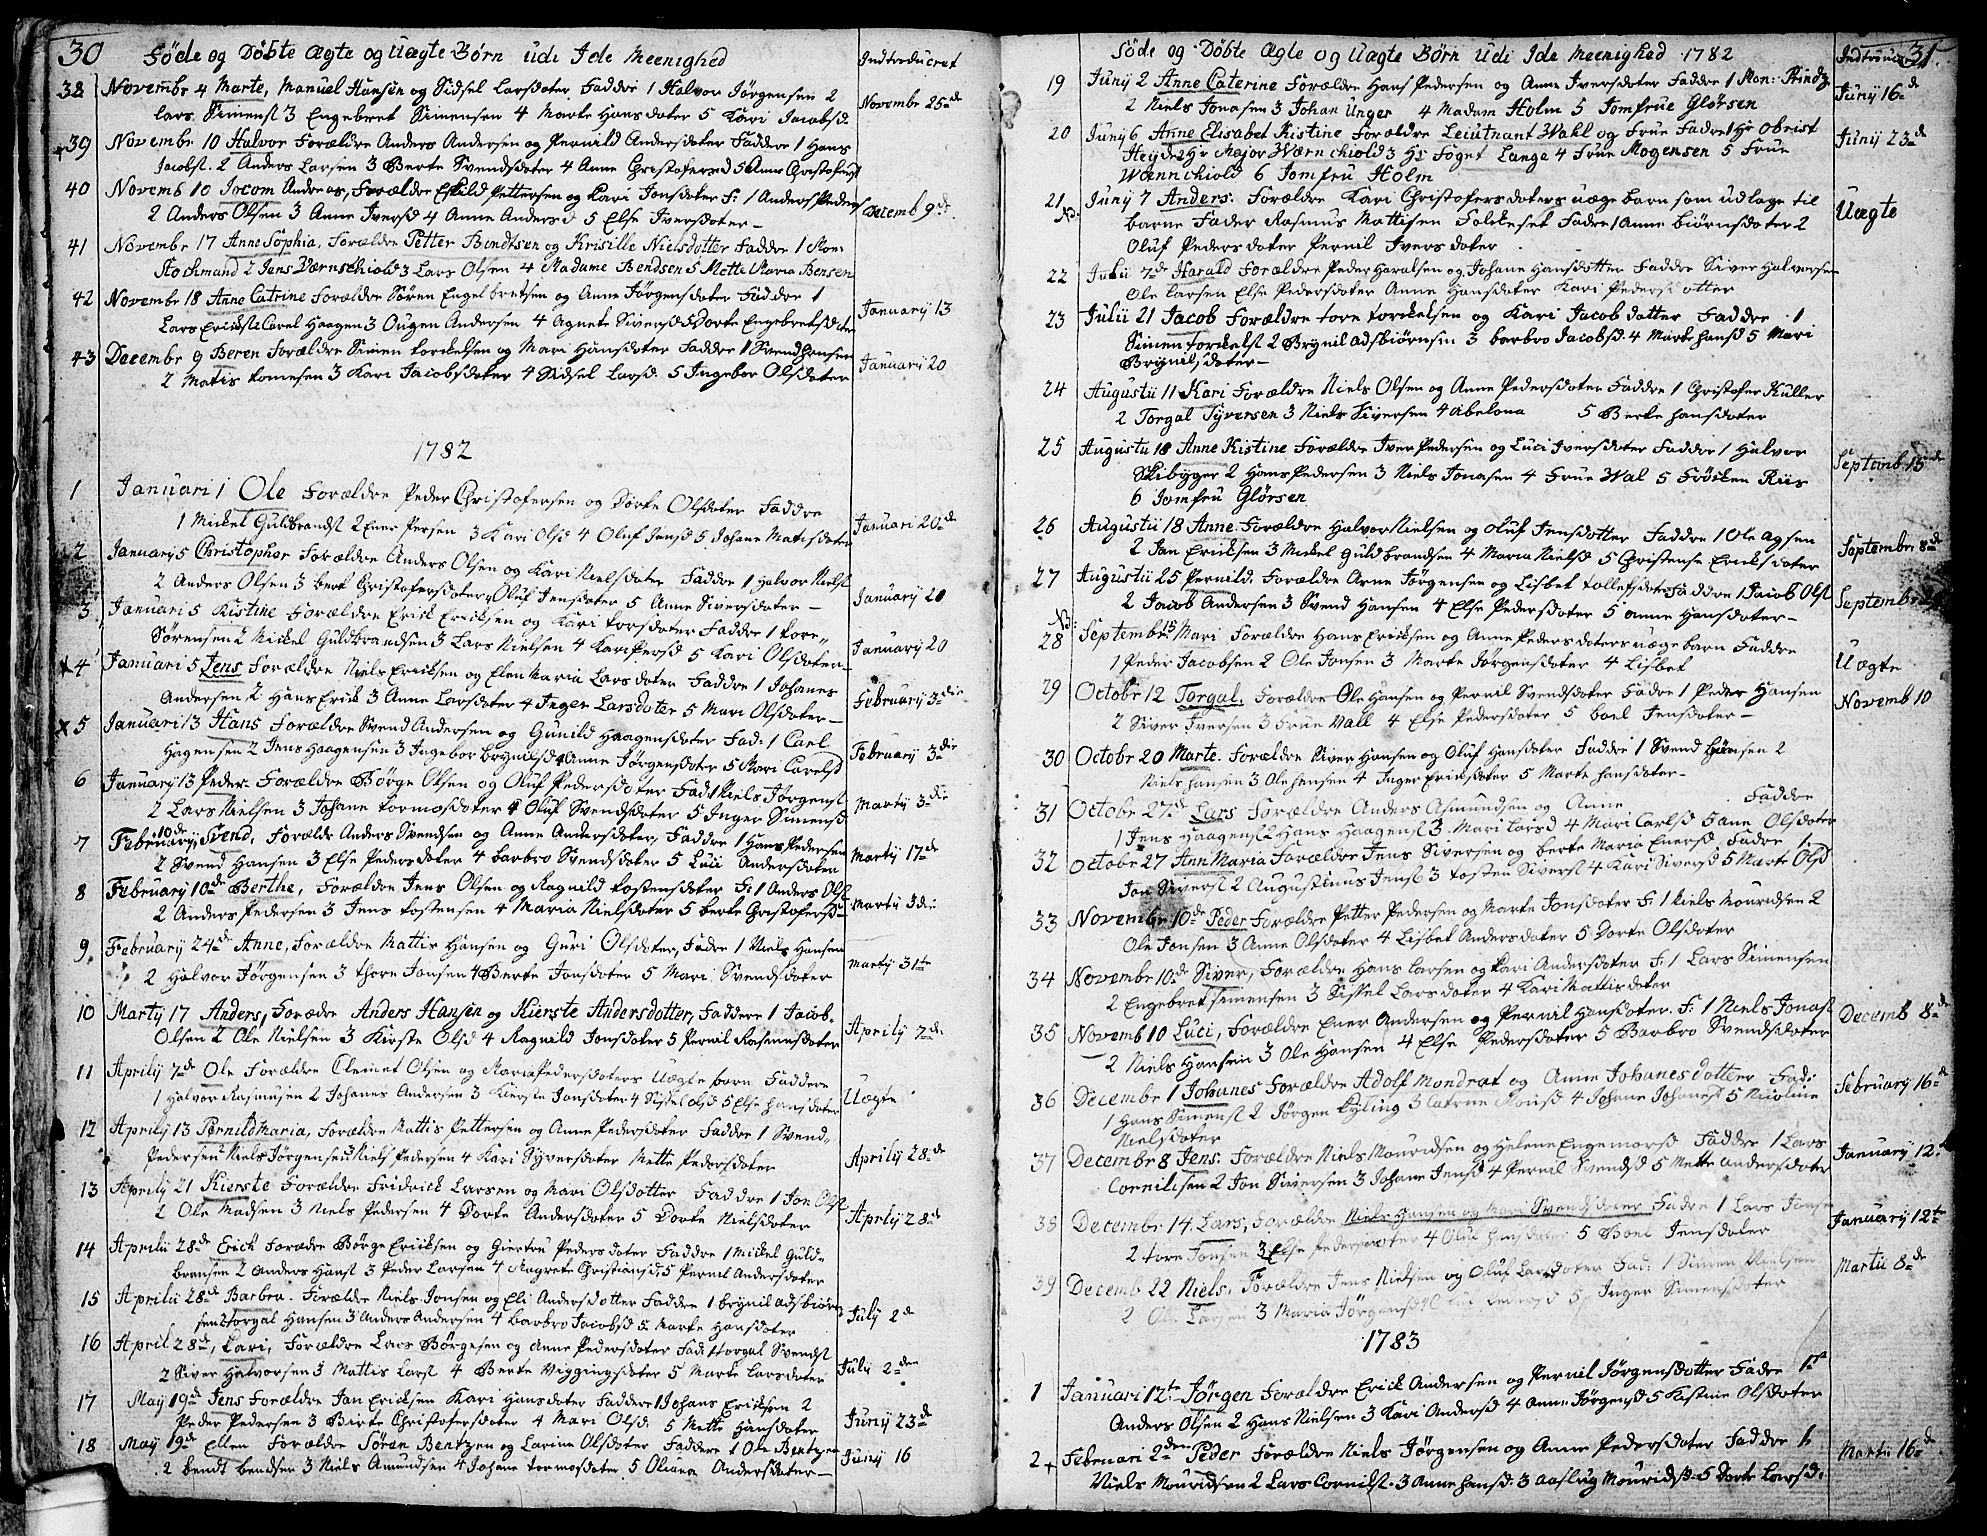 30 Føde og Døbte Ægte og Uægte Børn udi Ide Meenighed Indtroducret
38 Novembr 4 Marte, Manuel Hansen og Sidsel Larsdater Faddre 1 Halvor Jørgensen 2 Novembr 25de
Lars Simens: 3 Engebret Simensen 4 Marte Hans dater 5 Kari Jacobsd
39 Novembr 10 Halvor Forældre Anders Andersen og Pernild Andersdater Faddere 1 Hans
Jacobst. 2 Anders Larsen 3 Berte Svendsdater 4 Anne Christofersd 5 Anne Christofersd
40 Novemb 10 Jocom Andreas, Forældre Eskild Pettersen og Kari Jonsdater F: 1 Anders Peders Decemb 9de
2 Anders Olsen 3 Anne Iversd 4 Anne Andersd 5 Else Iversdater
41 Novembr 17 Anne Sophia, Forældre Petter Bendtsen og Krisille Nielsdotter Faddre 1 Mon:
Stochmand 2 Jens Værnschiold 3 Lars Olsen 4 Madame Bendsen 5 Mette Maria Bensen
42 Novembr 18 Anne Catrine Forældre Søren Engelbretsen og Anne Jørgensdater Faddre 1 January 13
Lars Erichs: 2 Carel Haagen 3 Ougen Andersen 4 Agnete Siversd 5 Dorte Engebretsdater
43 Decembr 9 Beren Forældre Simen torckelsen og Mari Hansdater Faddre 1 Svend Hansen January 20
2 Matis tomesen 3 Kari Jacobsdater 4 Sidsel Larsd. 5 Ingebor Olsdater
1782
1 Januari 1 Ole Forældre Peder Christofersen og Dorte Olsdater Faddre
1 Mickel Guldbrandst 2 Ener Persen 3 Kari Olsd 4 Oluf Jensd 5 Johane Matisdater Januari 20de
2 January 5 Christopher Forældre Anders Olsen og Kari Nielsdater Faddre 1 Halvor Nielst
2 Anders Olsen 3 bent Christofersdater 4 Oluf Jensdater 5 Anne Siversdater January 20
3 Januari 5 Kistine Forældre Erick Ericksen og Kari torsdater Faddre 1 tore
Sørensen 2 Mickel Guldbrandsen 3 Lars Nielsen 4 Kari Persd 5 Kari Olsdater January 20
4 Januari 5 Jens Forældre Niels Ericksen og Elen Maria Larsdater Faddre 1 Johanes
Andersen 2 Hans Erick 3 Anne Larsdater 4 Inger Larsdater 5 Mari Olsdater February 3die
5 Januari 13 Hans Forældre Svend Andersen og Gunild Haagensdater Fad: 1 Carl
Hagensen 2 Jens Haagensen 3 Ingebor brynilsd 4 Anne Jørgensdater 5 Mari Carelsd February 3die
6 January 13 Peder Forældre Børge Olsen og Oluf Pedersdater Fad 1 Niels Jørgenst
2 Lars Nielsen 3 Johane tormosdater 4 Oluf Svendsdater 5 Inger Simensd Marty 3die
7 February 10de Svend, Forældre Anders Svendsen og Anne Andersdater, Faddre 1 Hans Pedersen
2 Svend Hansen 3 Else Pedersdater 4 barbro Svendsdater 5 Luci Andersdater Marty 17de
8 February 10de Berthe, Forældre Jens Olsen og Ragnild tostensdater F: 1 Anders Olst
2 Anders Pedersen 3 Jens tostensen 4 Maria Nielsdater 5 berte Christofersd Marty 3die
9. February 24de Anne, Forældre Mattis Hansen og Guri Olsdater, Fadre 1 Niels Hansen
2 Halvor Jørgensen 3 thorn Jonsen 4 Berte Jonsdater 5 Mari Svendsdater Marty 31te
10 Marty 17 Anders, Forædre Anders Hansen og Kierste Andersdotter, Faddere 1 Jacob
Olsen 2 Ole Nielsen 3 Kirste Olsd 4 Ragnild Jonsdater 5 Pernil Rasmusdater Aprily 7de
11 Aprily 7de Ole Forældre Clemet Olsen og Maria Pedersdaters Uægte barn Faddere
1 Halvor Rasmusen 2 Johanes Andersen 3 Kierste Jonsdater 4 Sissel Olsd 5 Else Hansdater Uægte
12 Aprily 13 Pernild Maria, Forældre Mattis Pettersen og Anne Pedersdater Faddre 1 Svend
Pedersen 2 Niels Jørgensen 3 Niels Pedersen 4 Kari Syversdater Mette Pedersdater Aprily 28de
13 Aprily 21 Kierste Forældre Fridrick Larsen og Mari Olsdotter Faddre 1 Jon Olst
2 Ole Madsen 3 Niels Pedersen 4 Dorte Andersdater 5 Dorte Nielsdater Aprily 28de
14 Aprilii 28de Erich Forædre Børge Ericksen og Giertru Pedersdater Faddre 1 Mickel Guld-
bransen 2 Anders Hanst 3 Peder Larsen 4 Magrete Christiansd 5 Pernil Andersdater
15 Aprilii 28de Barbra. Forældre Niels Jonsen og Eli Andersdotter Faddre 1 brynil adsbiørn
sen 2 torgal Hansen 3 Anders Andersen 4 barbro Jacobsd 5 Marte Hansdater July 2d
16 April 28de, Kari, Forældre Lars Børgesen og Anne Pedersdater Fad: 1 torgal Svendst
2 Siver Halvorsen 3 Mattis Larst 4 Berte Viggingsdater 5 Marte Larsdater Juli 2den
17 May 19de Jens Forældre Jan Ericksen Kari Hansdater Faddere 1 Johans Ericksen 2
Peder Pedersen 3 Birte Christofersdater 4 Mari Olsd: 5 Mette Hansdater Juny 23de
18 May 19de Ellen Forældre Søren Bentzen og Larine Olsdater Faddere 1 Ole Bentzen
2 bendt bendsen 3 Niels Amundsen 4 Johane tormosdater 5 Oliana Andersdater Juny 16
Føde og Døbte Ægte og Uægte Børn udi Ide Meenighed 1782 31.
19 Juny 2 Anne Caterine Forældre Hans Pedersen og Anne Iversdater Faddre 1 Mon: Prindz Juny 16de
2 Niels Jonasen 3 Johan Unger 4 Madam Holm 5 Jomfrue Glørsen
20 Juny 6 Anne Elisabet Kistine Forældre Leiutnant Wahl og Frue Fadre 1 Hr Obrist Juny 23de
Heyde 2 Hr Major Wærnschiold 3 Hr Foget Lange 4 Frue Mogensen 5 Frue
Wærnschiold 6 Jomfru Holm
21 Juny 7 Anders. Forældre Kari Christofersdaters uæge barn som udlage til Uægte
Nb: barne Fader Rasmus Mattisen Folckeset Fadre 1 Anne biørnsdater 2
Oluf Pedersdater Pernil Iversdater
22 Julii 7de Harald Forældre Peder Haralsen og Johane Hansdotter Faddre Siver Halvorsen
Ole Larsen Else Pedersdater Anne Hansdater Kari Pedersdotter
23 Julii 21 Jacob Forældre tore torckelsen og Kari Jacobdatter Faddre 1
Simen torckelst 2 Brynil adsbiørnsen 3 barbro Jacobsd. 4 Marte Hansd 5 Mari
Brynilsdater
24 Augustii 11 Kari Forældre Niels Olsen og Anne Pedersdater Faddre 1 Christofer Kuller
2 Torgal Syversen 3 Niels Siversen 4 Abelona 5 Berte hansdater
25 Augustu 18 Anne Kistine Forældre Iver Pedersen og Luci Iversdater Faddre 1 Halvor
Skibyger 2 Hans Pedersen 3 Niels Jonasen 4 Frue Wal 5 Frøiken Riis Septemb 15de
6 Jomfru Glørsen
26 Augustii 18 Anne Forældre Halvor Nielsen og Oluf Jensdotter Faddre 1 Ole Agsen
2 Jan Ericksen 3 Mickel Guldbrandsen 4 Maria Nielsd 5 Christense Ericksdater Septembr 8de
27 Augustii 25 Pernild. Forældre Arne Jørgensen og Lisbet tollefsdater Faddre 1 Jacob Olst
2 Jacob Andersen 3 Svend Hansen 4 Else Pedersdater 5 Anne Hansdater Septembr
Nb:
28 Septembr 15 Mari Forældre Hans Ericksen og Anne Pedersdaters uæge barn Faddre
1 Peder Jacobsen 2 Ole Jonsen 3 Marte Jørgensdater 4 Lisbet Uægte
29 Octobr 12 Torgal, Forældre Ole Hansen og Pernil Svendsdater Fadre 1 Peder Hansen
2 Siver Iversen 3 Frue Wall 4 Else Pedersdater 5 boel Jensdater Novemb 10
30 Octobr 20 Marte. Forældre Siver Hansen og Oluf Hansdater Faddre 1 Svend Hansen 2
Niels Hansen 3 Ole Hensen 4 Inger Ericksdater 5 Marte Hansdater
31 Octobr 27de Lars Forældre Anders Asmundsen og Anne Faddre
1 Jens Haagenst 2 Hans Haagenst 3 Mari Larsd 4 Mari Carlsd 5 ane Olsdater
32 Octobr 27 Ann Maria Forældre Jens Siversen og berte Maria Enersd Fadre 1
Jon Siverst 2 Augustinus Jenst 3 tosten Siverst 4 Kari Siversd 5 Marte Olsd
33 Novembr 10de Peder Forældre Petter Pedersen og Marte Jonsdater F: 1 Niels Mouridsen 2
Ole Jonsen 3 Anne Olsdater 4 Lisbet Andersdater 5 Dorte Olsdater
34 Novembr 10de Siver, Forældre Hans Larsen og Kari Andersdater F: 1 Lars Simensen
2 Engebret Simensen 3 Sissel Larsdater 4 Kari Mattisdater
35 Novemb 10 Luci, Forældre Ener Andersen og Pernil Hansdater. F: 1 Niels Jonast Decemb 8de
2 Niels Hansen 3 Ole Hansen 4 Else Pedersdater 5 Barbro Svendsdater
36 Decembr 1 Johanes Forældre Adolf Mondrat og Anne Johanesdotter Fad: February 16de
1 Hans Simenst 2 Jørgen Kyling 3 Catrine Mousd 4 Johane Johanesd 5 Nicoline
Nielsdater
37 Decembr 8 Jens. Forældre Niels Mouridsen og Helene Engemorsd Faddre 1 Lars January 12te
Cornilisen 2 Jon Siversen 3 Johane Jensd 4 Pernil Svendsd 5 Mette Andersdater
38 Decembr 14 Lars, Forældre Niels Hansen og Mari Svendsdater Fadre 1 Lars Jonsen January 12te
2 tore Jonsen 3 Else Pedersdater 4 Oluf Hansdater 5 Boel Jensdater
39 Decemb 22 Niels. Forældre Jens Nielsen og Oluf Larsdater Fad: 1 Simen Nielsen Martii 8de
2 Ole Larsen 3 Maria Jørgensd 4 Oluf Pedersd 5 Inger Simensdater
1783
1 Januari 12te Jørgen Forældre Erick Andersen og Pernil Jørgensdotter Fadre 1
Anders Olsen 2 Hans Nielsen 3 Kari Andersd 4 Anne Jørgensd 5 Kistine Olsdater
2 Februari 2den Peder Forældre Niels Jørgensen og Anne Pedersdater Faddre 1 Martii 16de
Niels Mouridsen 2 Lars Cornilst. 3 Anne Hansd: 3 Aaslug Mouridsd. 5 Dorte Larsd.